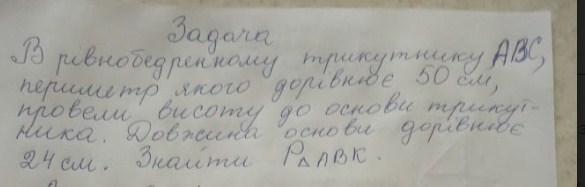 Задача
В рівнобедренному трикутнику АВС,
периметр якого дорівнює 50 см,
провели висоту до основи трикут-
ника. Довжина основи дорівнює
24 см. Знайти P△ΛВК.